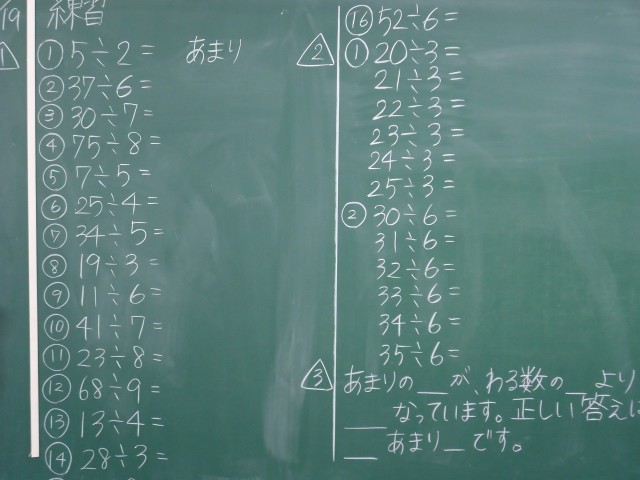 19 練習
1 ① 5÷2= あまり
② 37÷6=
③ 30÷7=
④ 75÷8=
⑤ 7÷5=
⑥ 25÷4=
⑦ 34÷5=
⑧ 19÷3=
⑨ 11÷6=
⑩ 41÷7=
⑪ 23÷8=
⑫ 68÷9=
⑬ 13÷4=
⑭ 28÷3=
⑯ 52÷6=
2 ① 20÷3=
21÷3=
22÷3=
23÷3=
24÷3=
25÷3=
② 30÷6=
31÷6=
32÷6=
33÷6=
34÷6=
35÷6=
3 あまりの__が、わる数の__より
__なっています。正しい答えに
__あまり__です。